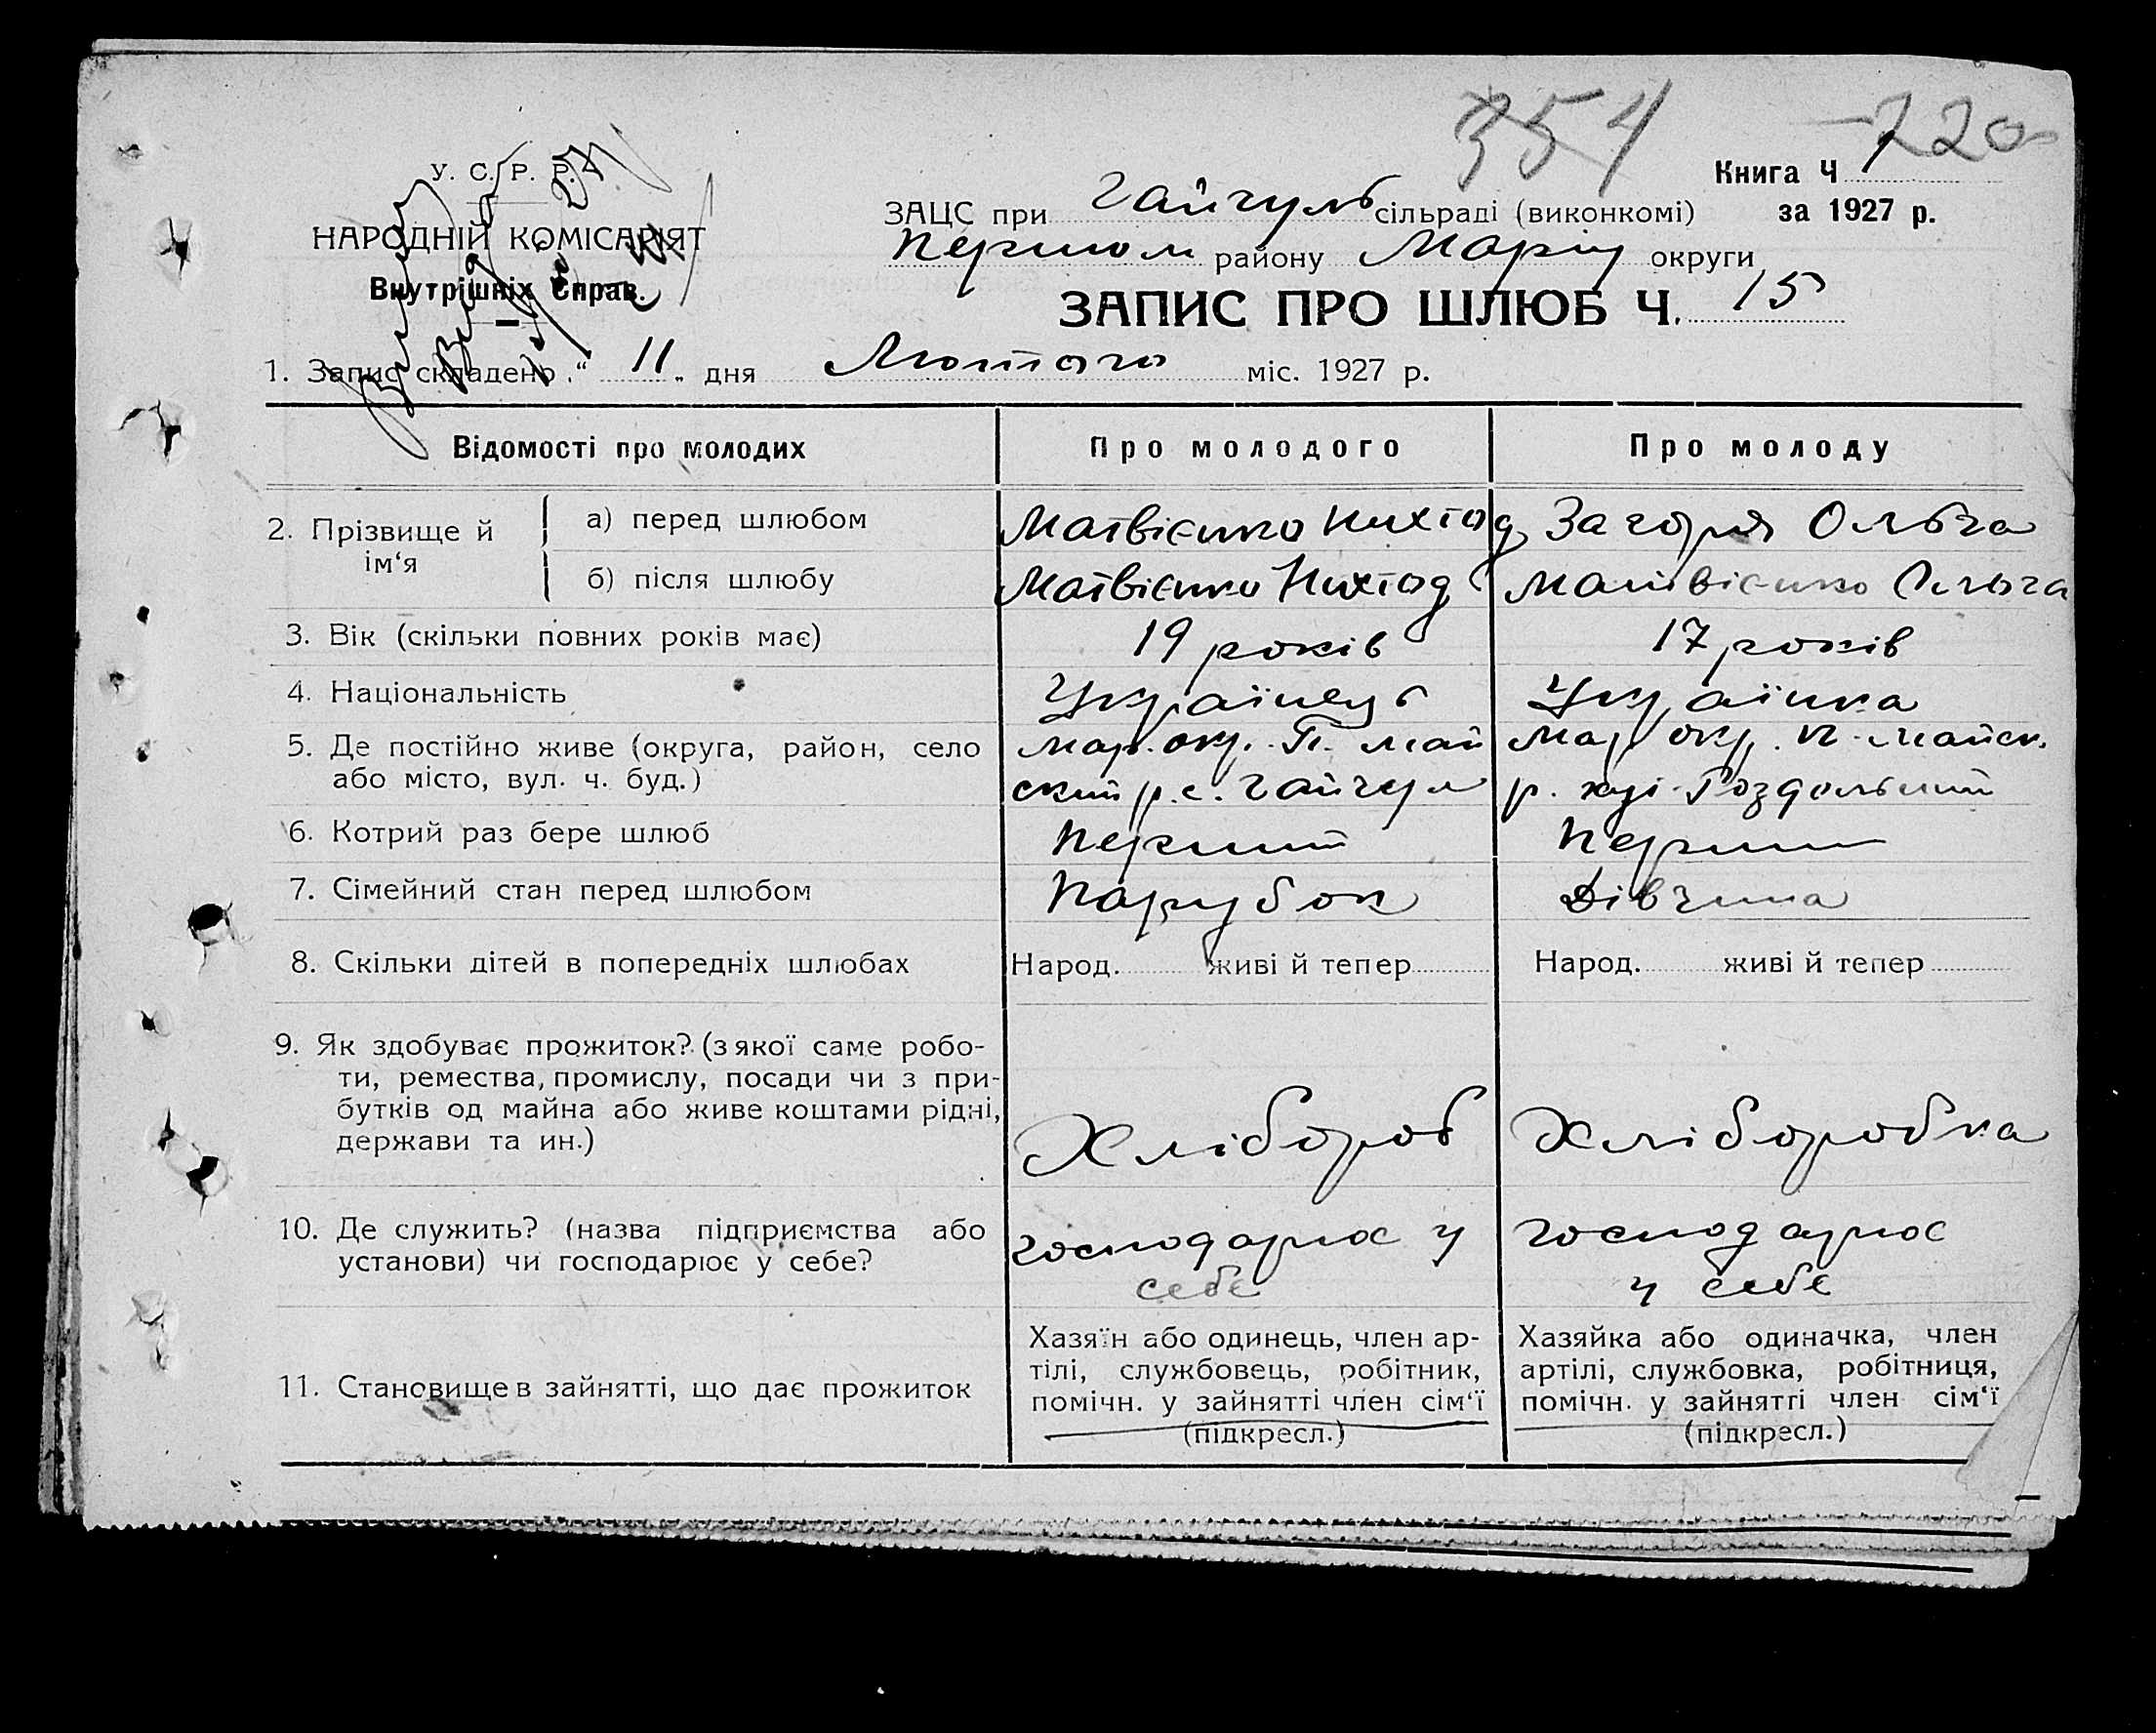 354 220
У. С. Р. Р.
НАРОДНІЙ КОМІСАРІЯТ
Внутрішніх Справ.
Книга Ч 1
за 1927 р.
ЗАЦС при Гайчуль сільраді (виконкомі)
Першом району Маріу округи
ЗАПИС ПРО ШЛЮБ Ч. 15
1. Запис складено „ 11 „ дня Лютого міс. 1927 р.
Відомості про молодих Про молодого Про молоду
2. Прізвище й ім‘я
а) перед шлюбом Матвієнко Загорня Ольга
б) після шлюбу Матвієнко Матвієнко Ольга
3. Вік (скільки повних років має) 19 років 17 років
4. Національність Українець Українка
5. Де постійно живе (округа, район, село Мар. окр. П. май Мар. окр. П. майск.
або місто, вул. ч. буд.) ский р. с. Гайчул р. Роздольний
6. Котрий раз бере шлюб Перший Перший
7. Сімейний стан перед шлюбом Парубок Дівчина
8. Скільки дітей в попередніх шлюбах Народ. живі й тепер Народ. живі й тепер
9. Як здобуває прожиток? (з якої саме робо-
ти, ремества, промислу, посади чи з при-
бутків од майна або живе коштами рідні,
держави та ин.) Хлібороб Хліборобка
10. Де служить? (назва підприємства або господарює у господарює
установи) чи господарює у себе? себе у себе
11. Становище в зайнятті, що дає прожиток
Хазяїн або одинець, член ар-
тілі, службовець, робітник,
помічн. у зайнятті член сім‘ї
(підкресл.)
Хазяйка або одиначка, член
артілі, службовка, робітниця,
помічн. у зайнятті член сім‘ї
(підкресл.)